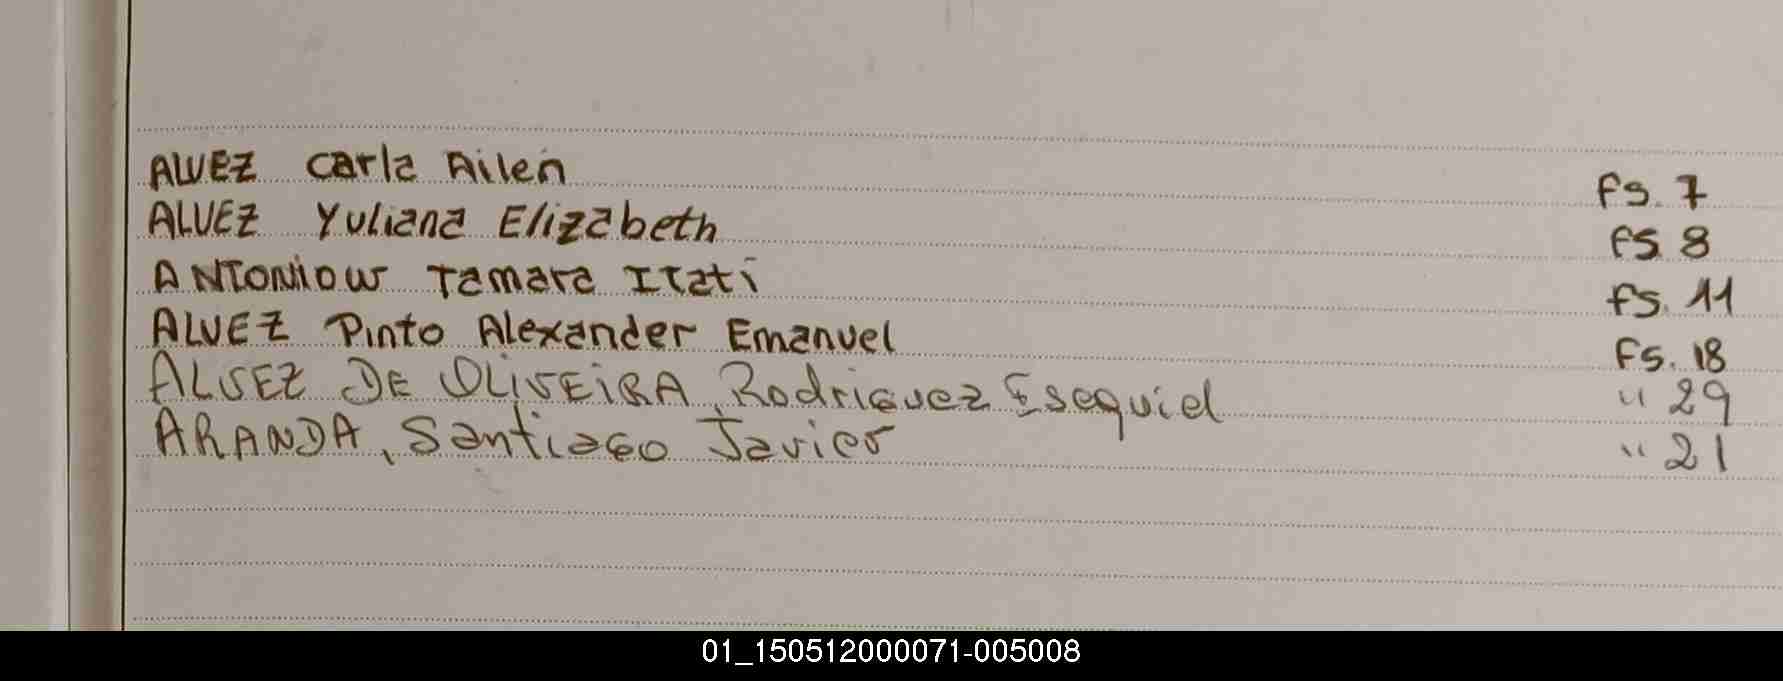 ALVEZ Carla Ailén fs. 7
ALVEZ Yuliana Elizabeth fs 8
ANTONIOW Tamara Itati fs. 11
ALVEZ Pinto Alexander Emanuel Fs. 18
ALVEZ DE OLIVEIRA, Rodriguez Esequiel " 29
ARANDA, Santiago Javier " 21
01_150512000071-005008